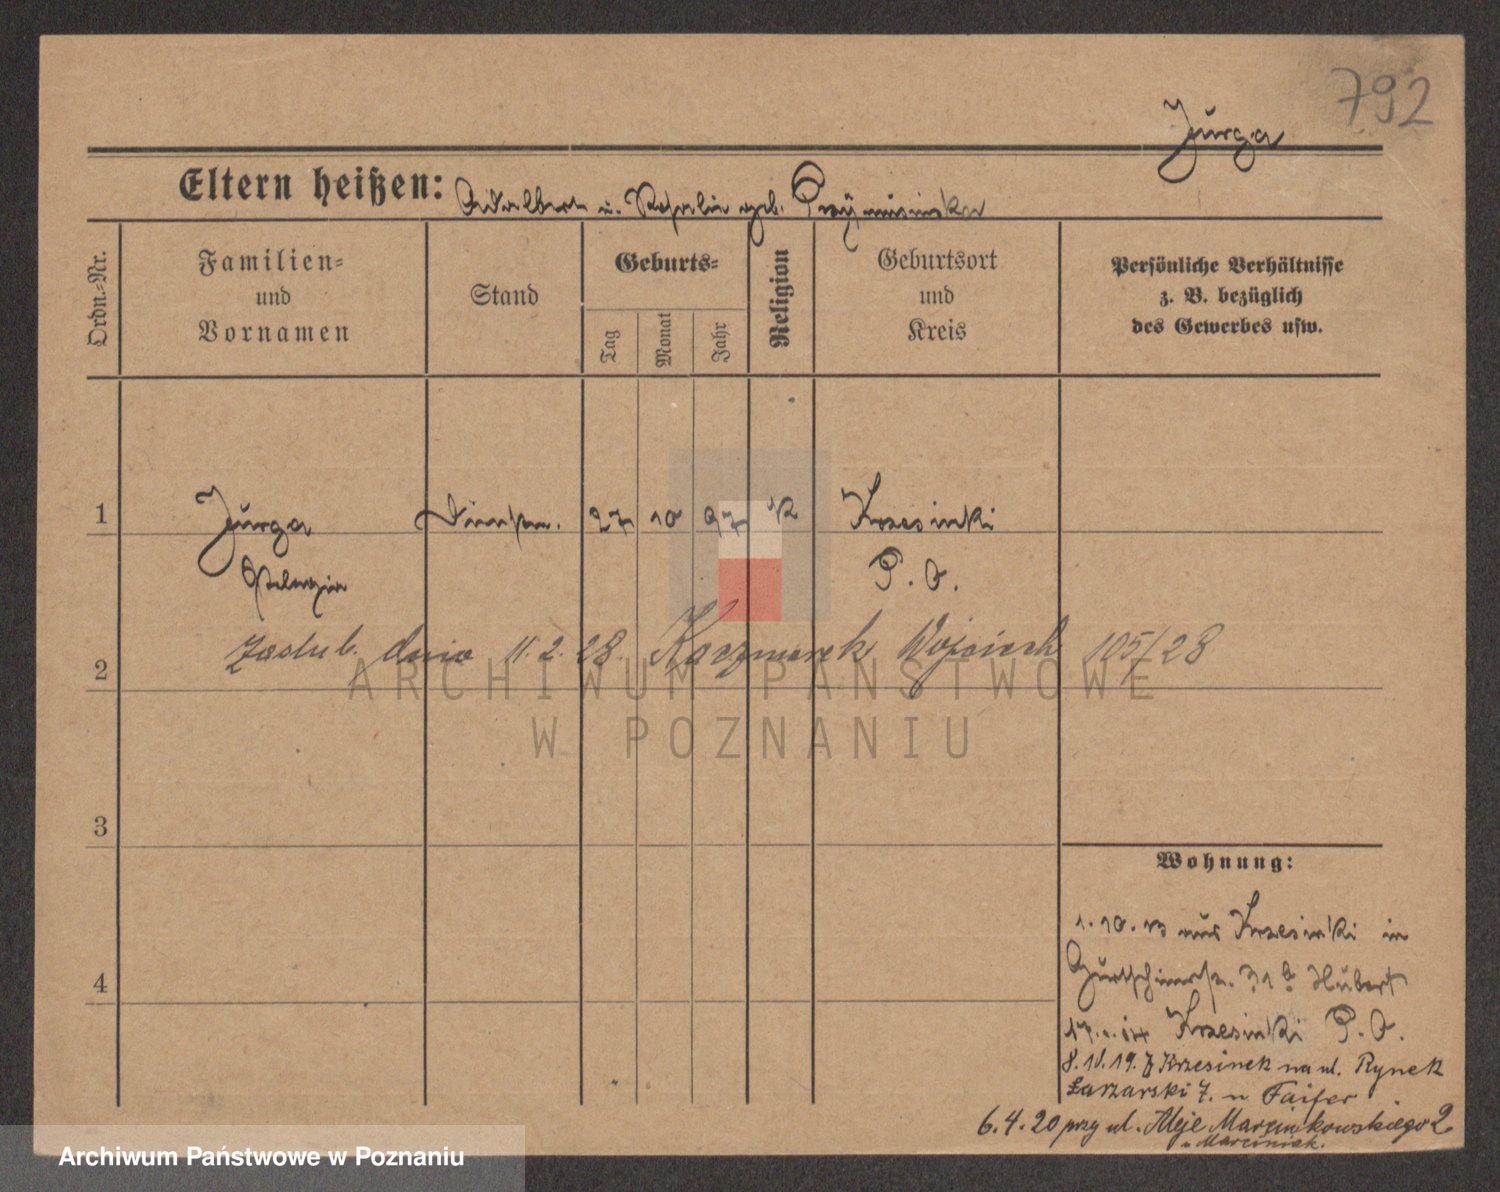 792
Jurga
Eltern heißen: Adalbert u. Rosalie geb. Przymusinska
Ordn.-Nr.
Familien-
und
Vornamen
Stand
Geburts-
Tag
Monat
Jahr
Religion
Geburtsort
und
Kreis
Persönliche Verhältnisse
z. B. bezüglich
des Gewerbes usw.
1 Jurga 27 10 97 K Krzesinki
Pelagia P. O.
2 zaślub. dnia 11.2.28. Kaczmarek Wojciech 105/28
3
4
Wohnung:
1.10.13 aus Krzesinki in
31 b Hubert
Krzesinki P. O.
8.10.19. z Krzesinek na ul. Rynek
Łazarski 7. u Faifer
6.4.20 przy ul. Aleje Marcinkowskiego 2
u Marciniak.
ARCHIWUM PAŃSTWOWE
W POZNANIU
Archiwum Państwowe w Poznaniu